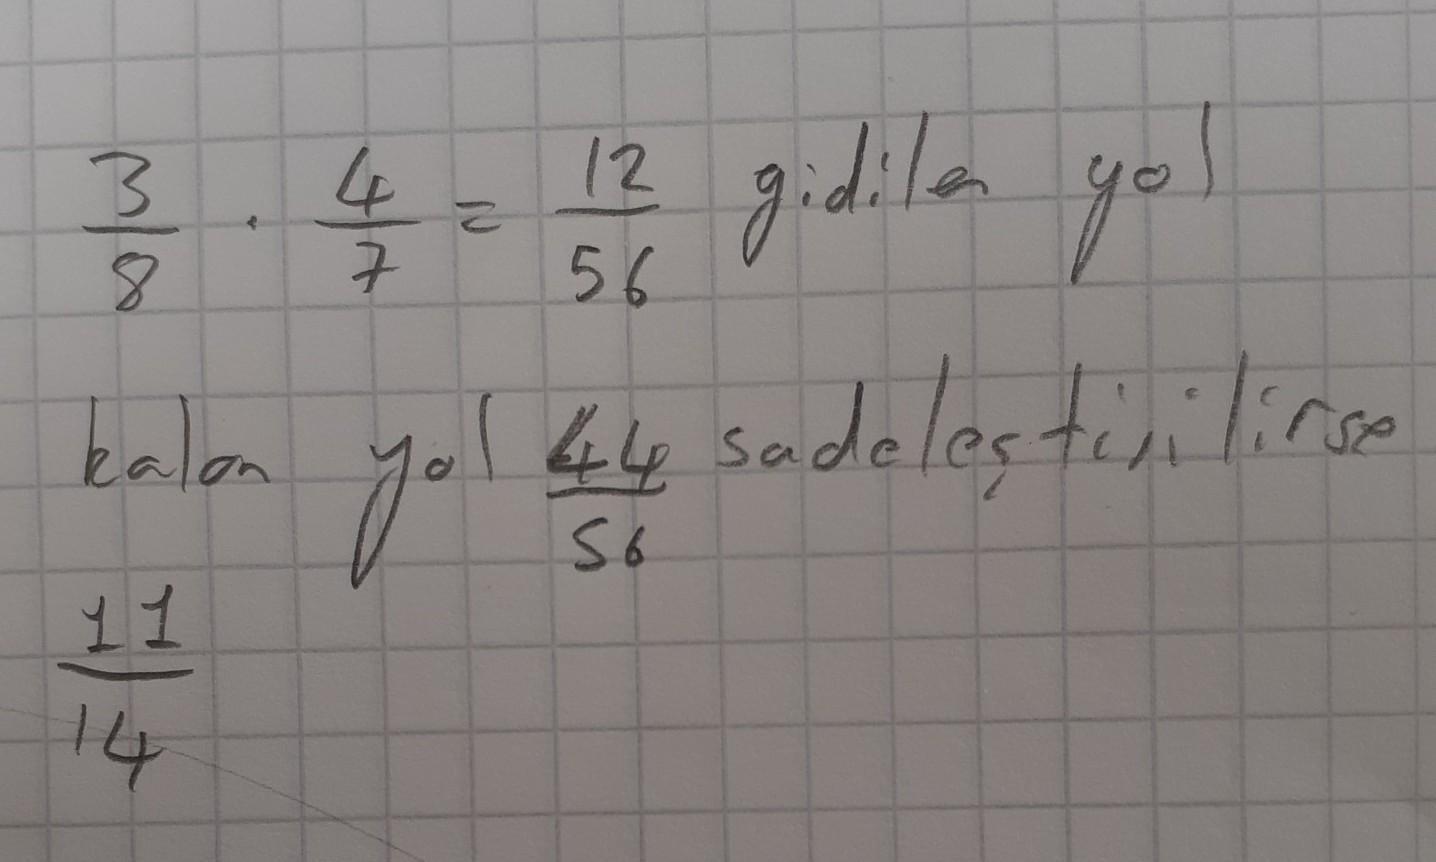 3/8 · 4/7 = 12/56 gidilen yol
kalan yol 44/56 sadeleştirilirse
11/14